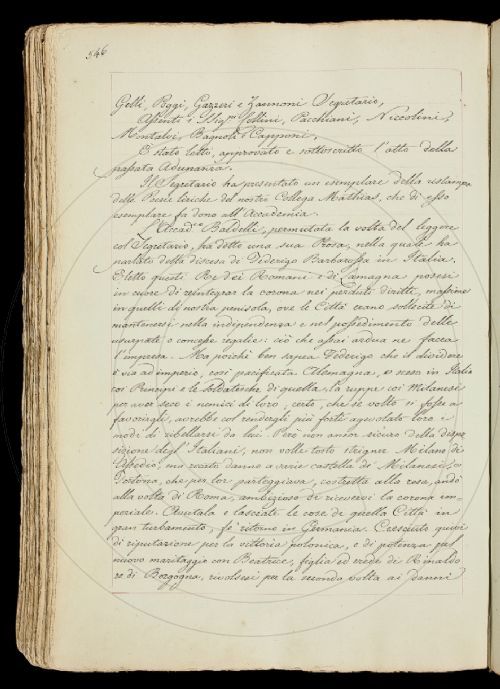 546
Gelli, Poggi, Gazzeri e Zannoni Segretario,
Assenti i Sigri Follini, Pacchiani, Niccolini,
Montalvi, Bagnoli e Capponi.
È stato letto, approvato e sottoscritto l'atto della
passata Adunanza.
Il Segretario ha presentato un esemplare della ristampa
delle Poesie liriche del nostro Collega Mathias, che di esso
esemplare fa dono all'Accademia.
L'Accad.co Baldelli, permutata la volta del leggere
col Segretario, ha detto una sua Prosa, nella quale ha
parlato della discesa di Federigo Barbarossa in Italia.
Eletto questi Re dei Romani e di Lamagna posesi
in cuore di reintegrar la corona nei perduti diritti, massime
in quelli di nostra penisola, ove le Città erano sollecite di
mantenersi nella independenza e nel possedimento delle
usurpate o concesse regalie: ciò che assai ardua ne facea
l'impresa. Ma poichè ben sapea Federigo che il dividere
è via ad imperio, così pacificata Allemagna, e sceso in Italia
coi Principi e le soldatesche di quella, la ruppe coi Milanesi
per aver seco i nemici di loro, certo, che se volto si fosse a
favorirgli, avrebbe col rendergli più forti agevolato loro i
modi di ribellarsi da lui. Però non ancor sicuro della dispo
sizione degl'Italiani, non volle tosto strigner Milano di
assedio, ma recato danno a varie castella de' Milanesi, e
Tortona, che per lor parteggiava, costretta alla resa, andò
alla volta di Roma, ambizioso di ricevervi la corona im-
periale. Avutala e lasciate le cose di quella Città in
gran turbamento, fe' ritorno in Germania. Cresciuto quivi
di riputazione per la vittoria polonica, e di potenza pel
nuovo maritaggio con Beatrice, figlia ed erede di Rinaldo
re di Borgogna, rivolsesi per la seconda volta ai danni